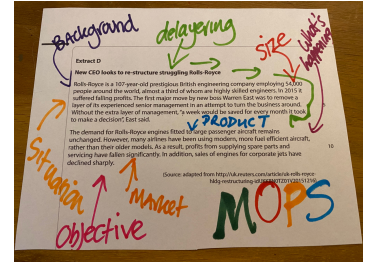 BACKGROUND
delayering
size
What's happening
Extract D
New CEO looks to re-structure struggling Rolls-Royce
Rolls-Royce is a 107-year-old prestigious British engineering company employing 54,000
people around the world, almost a third of whom are highly skilled engineers. In 2015 it
suffered falling profits. The first major move by new boss Warren East was to remove a
layer of its experienced senior management in an attempt to turn the business around.
Without the extra layer of management, "a week would be saved for every month it took
to make a decision", East said.
PRODUCT
The demand for Rolls-Royce engines fitted to large passenger aircraft remains
unchanged. However, many airlines have been using modern, more fuel efficient aircraft,
rather than their older models. As a result, profits from supplying spare parts and
10
servicing have fallen significantly. In addition, sales of engines for corporate jets have
declined sharply.
(Source: adapted from http://uk.reuters.com/article/uk-rolls-royce
Situation
Objective
MARKET
MOPS